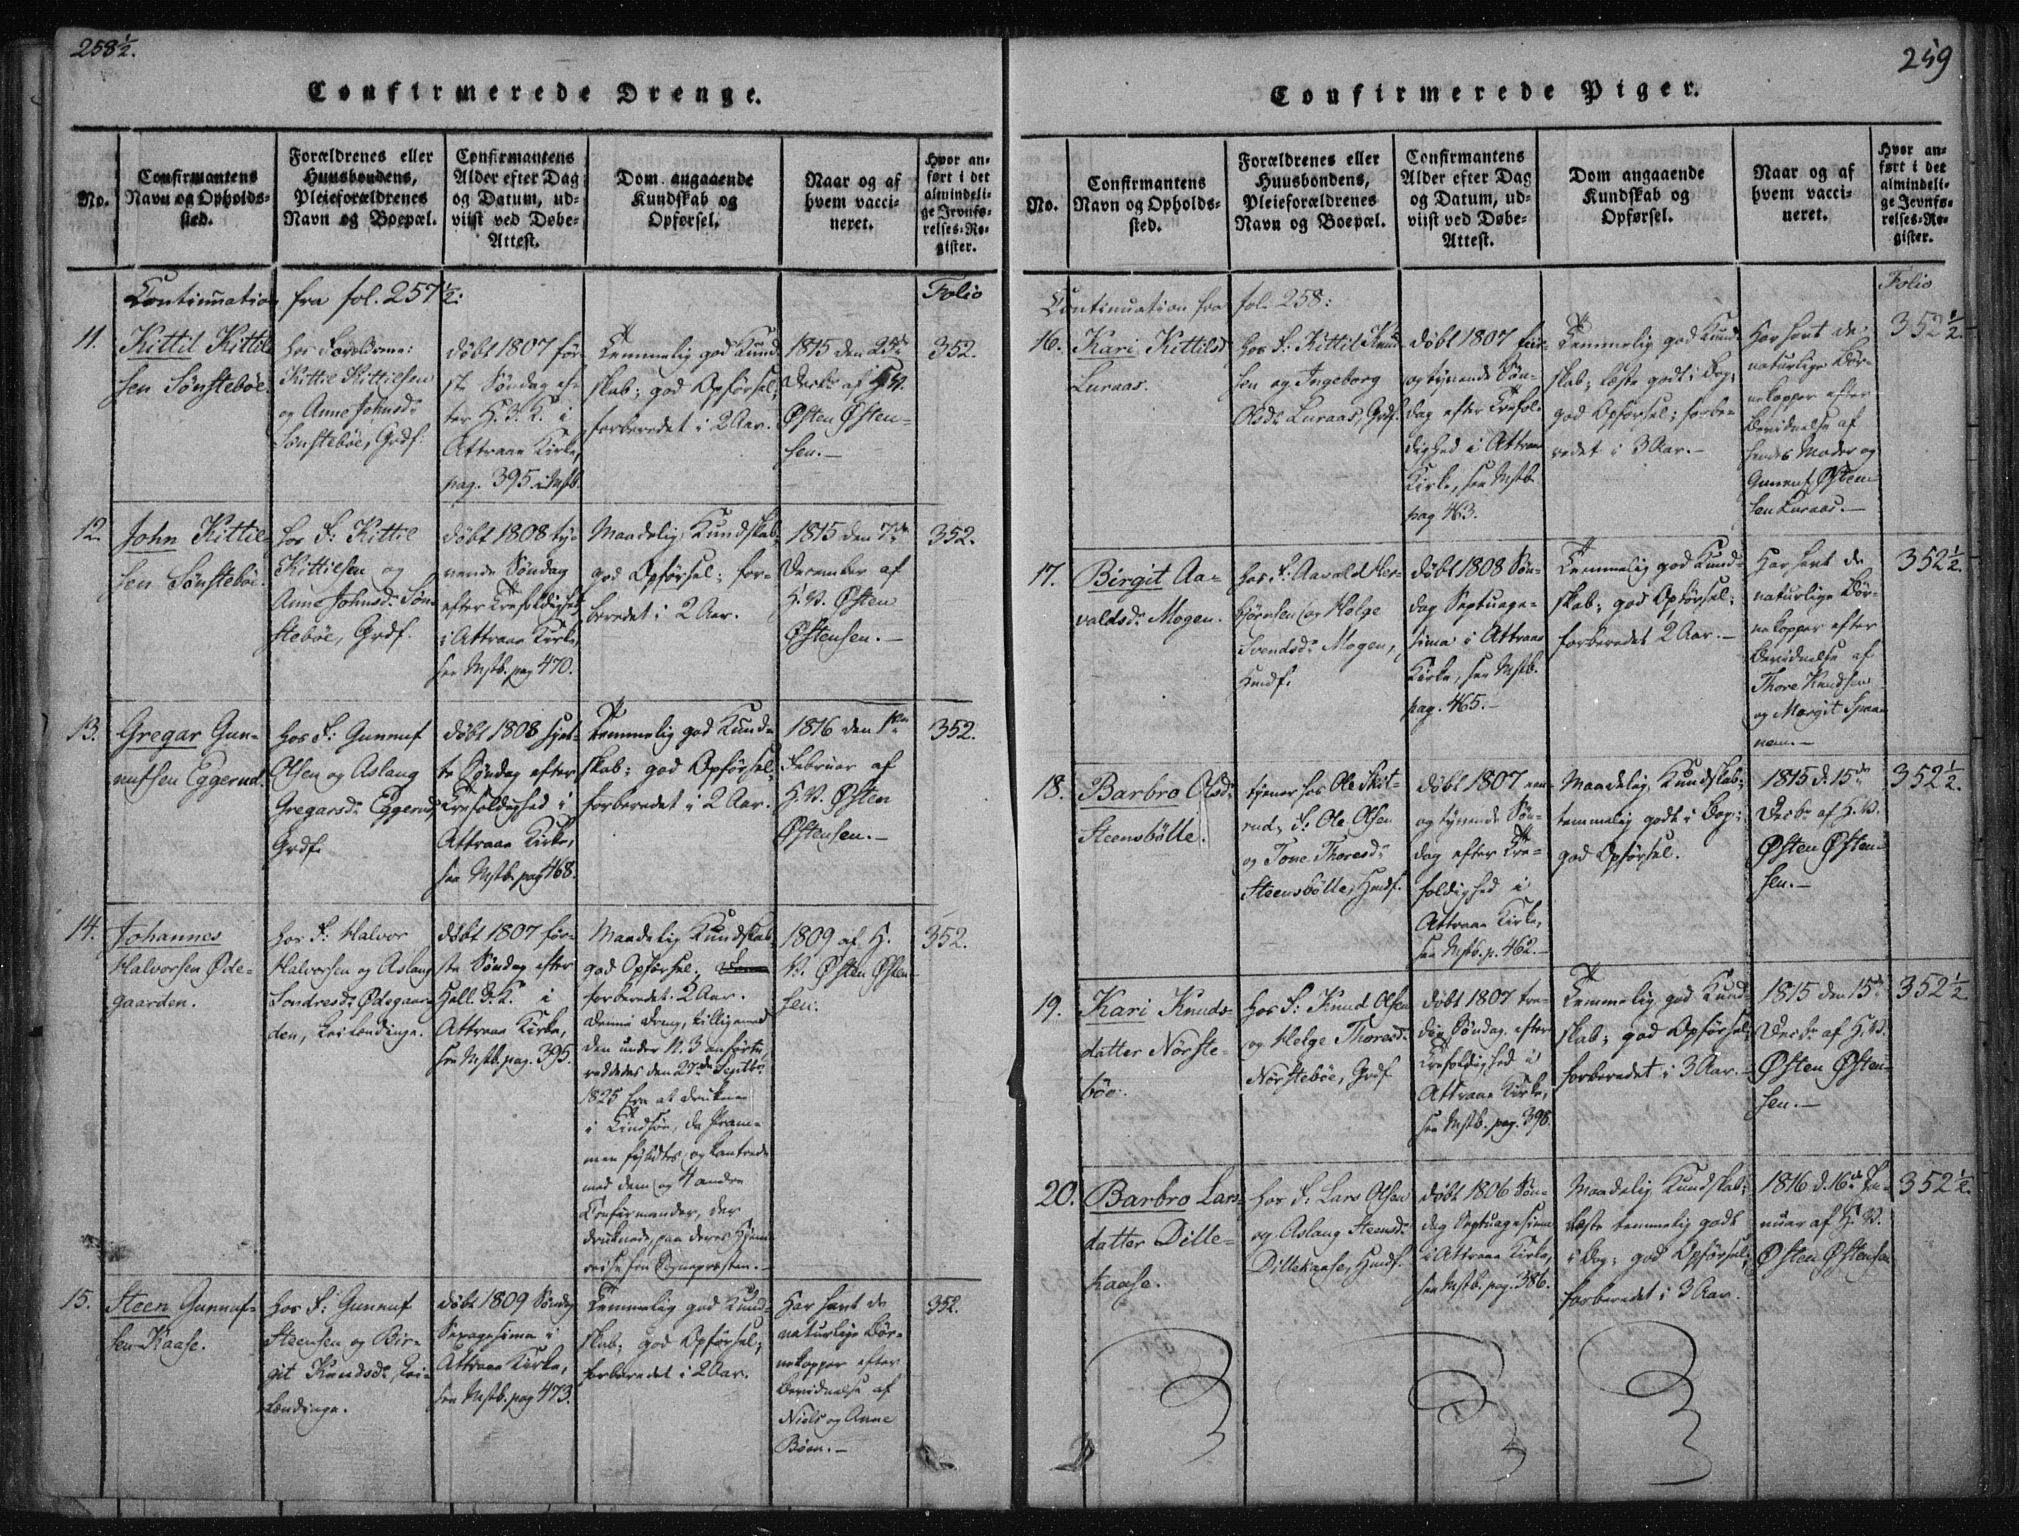 258½.
Confirmerede Drenge.
No.
Confirmantens
Navn og Opholds-
sted.
Forældrenes eller
Huusbondens,
Pleieforældrenes
Navn og Boepæl.
Confirmantens
Alder efter Dag
og Datum, ud-
viist ved Døbe-
Attest.
Dom angaaende
Kundskab og
Opførsel.
Naar og af
hvem vacci-
neret.
Hvor an-
ført i det
almindeli-
ge Jevnfø-
relses-Re-
gister.
Continuation fra fol. 257½:
Folio
11.
Kittil Kittil-
sen Sønstebøe.
hos Forældrene:
Kittil Kittilsen
og Anne Johnsdr
Sønstebøe, Grdf.
døbt 1807 før-
ste Søndag ef-
ter H. 3 K. i
Attraae Kirke,
pag. 395 i Mstb.
Temmelig god Kund-
skab; god Opførsel;
forberedet i 2 Aar.
1815 den
Decbr af H.V.
Østen Østen-
sen.
352.
12.
John Kittil-
sen Sønstebøe.
hos F: Kittil
Kittilsen og
Anne Johnsdr Søn-
stebøe, Grdf.
døbt 1808 ty-
vende Søndag
efter Trefoldighed
i Attraae Kirke,
see Mstb. pag 470.
Maadelig Kundskab;
god Opførsel; for-
beredet i 2 Aar.
1815 den 7de
December af
H.V. Østen
Østensen.
352.
13.
Gregar Gun-
nufsen Eggerud.
hos F: Gunnuf
Olsen og Aslaug
Gregarsdr Eggerud,
Grdf.
døbt 1808 sjet-
te Søndag efter
Trefoldighed i
Attraae Kirke,
see Mstb. pag 468.
Temmelig god Kund-
skab; god Opførsel;
forberedet i 2 Aar.
1816 den 1ste
Februar af
H.V. Østen
Østensen.
352.
14.
Johannes
Halvorsen Øde-
gaarden.
hos F: Halvor
Halvorsen og Aslaug
Sondresdr Ødegaar-
den, Leilændinge.
døbt 1807 før-
ste Søndag efter
Hell. 3 K. i
Attraae Kirke,
see Mstb. pag. 395.
Maadelig Kundskab,
god Opførsel,
forberedet 2 Aar.
Denne Dreng, tilligemed
den under N. 3 anførte,
reddedes den 27de Septbr
1825 fra at drukne
i Tindsøe, da Pram-
men fyldtes og kantrede
med dem og 4 andre
Confirmander, der
druknede, paa deres Hjem-
reise fra Sognepræsten.
1809 af H.
V. Østen Østen-
sen.
352.
15.
Steen Gunnuf-
sen Kaase.
hos F: Gunnuf
Steensen og Bir-
git Knudsdr, Lei-
lændinge.
døbt 1809 Søndag
Sexagesima i
Attraae Kirke,
see Mstb. pag 473.
Temmelig god Kund-
skab, god Opførsel;
forberedet i 2 Aar.
Har havt de
naturlige Bør-
nekopper efter
Bevidnelse af
Niels og Anne
Bøen.
352.
259
Confirmerede Piger.
No.
Confirmantens
Navn og Opholds-
sted.
Forældrenes eller
Huusbondens,
Pleieforældrenes
Navn og Boepæl.
Confirmantens
Alder efter Dag
og Datum, ud-
viist ved Døbe-
Attest.
Dom angaaende
Kundskab og
Opførsel.
Naar og af
hvem vacci-
neret.
Hvor an-
ført i det
almindeli-
ge Jevnfø-
relses-Re-
gister.
Continuation fra fol. 258:
Folio
16.
Kari Kittilsdr
Luraas.
hos F: Kittil Knud-
sen og Ingeborg
Olsdr Luraas, Grdf.
døbt 1807 een
og tyvende Søn-
dag efter Trefol-
dighed i Attraae
Kirke, see Mstb.
pag 463.
Temmelig god Kund-
skab; læste godt i Bog;
god Opførsel; forbe-
redet i 3 Aar.
Har havt de
naturlige Bør-
nekopper efter
Bevidnelse af
hendes Moder og
Gunnuf Østen-
sen Luraas.
352½.
17.
Birgit Aa-
valdsdr Mogen.
hos F: Aavald Her-
bjørnsen og Helge
Svendsdr Mogen,
Huusf.
døbt 1808 Søn-
dag Septuage-
sima i Attraae
Kirke, see Mstb.
pag. 465.
Temmelig god Kund-
skab; god Opførsel;
forberedet 2 Aar.
Har havt de
naturlige Bør-
nekopper efter
Bevidnelse af
Thore Knudsen
og Margit Spaa-
nem.
352½.
18.
Barbro Olsdr
Steensbølle.
tjener hos Ole Skit-
rud, F: Ole Olsen
og Tone Thoresdr
Steensbølle, Huusf.
døbt 1807 een
og tyvende Søn-
dag efter Tre-
foldighed i
Attraae Kirke,
see Mstb. p. 462.
Maadelig Kundskab;
temmelig godt i Bog;
god Opførsel.
1815 d. 15de
Decbr af H.V.
Østen Østen-
sen.
352½.
19.
Kari Knuds-
datter Nørste-
bøe.
hos F: Knud Olsen
og Helge Thoresdr
Nørstebøe, Grdf
døbt 1807 tre-
die Søndag efter
Trefoldighed i
Attraae Kirke,
see Mstb. pag. 398.
Temmelig god Kund-
skab; god Opførsel;
forberedet i 3 Aar.
1815 den 15de
Decbr af H.V.
Østen Østen-
sen.
352½
20.
Barbro Lars-
datter Dille-
kaase.
hos F: Lars Olsen
og Aslaug Steensdr
Dillekaase, Huusf.
døbt 1806 Søn-
dag Septuagesima
i Attraae Kirke,
see Mstb. pag. 386.
Maadelig Kundskab;
læste temmelig godt
i Bog; god Opførsel;
forberedet i 3 Aar.
1816 d. 16de Ja-
nuar af H.V.
Østen Østensen
352½.